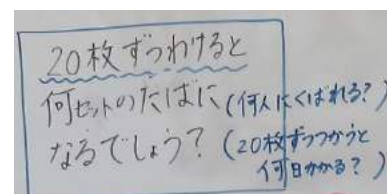 20枚ずつわけると
何セットのたばに(何人にくばれる?)
なるでしょう?(20枚ずつつかうと
何日かかる?)